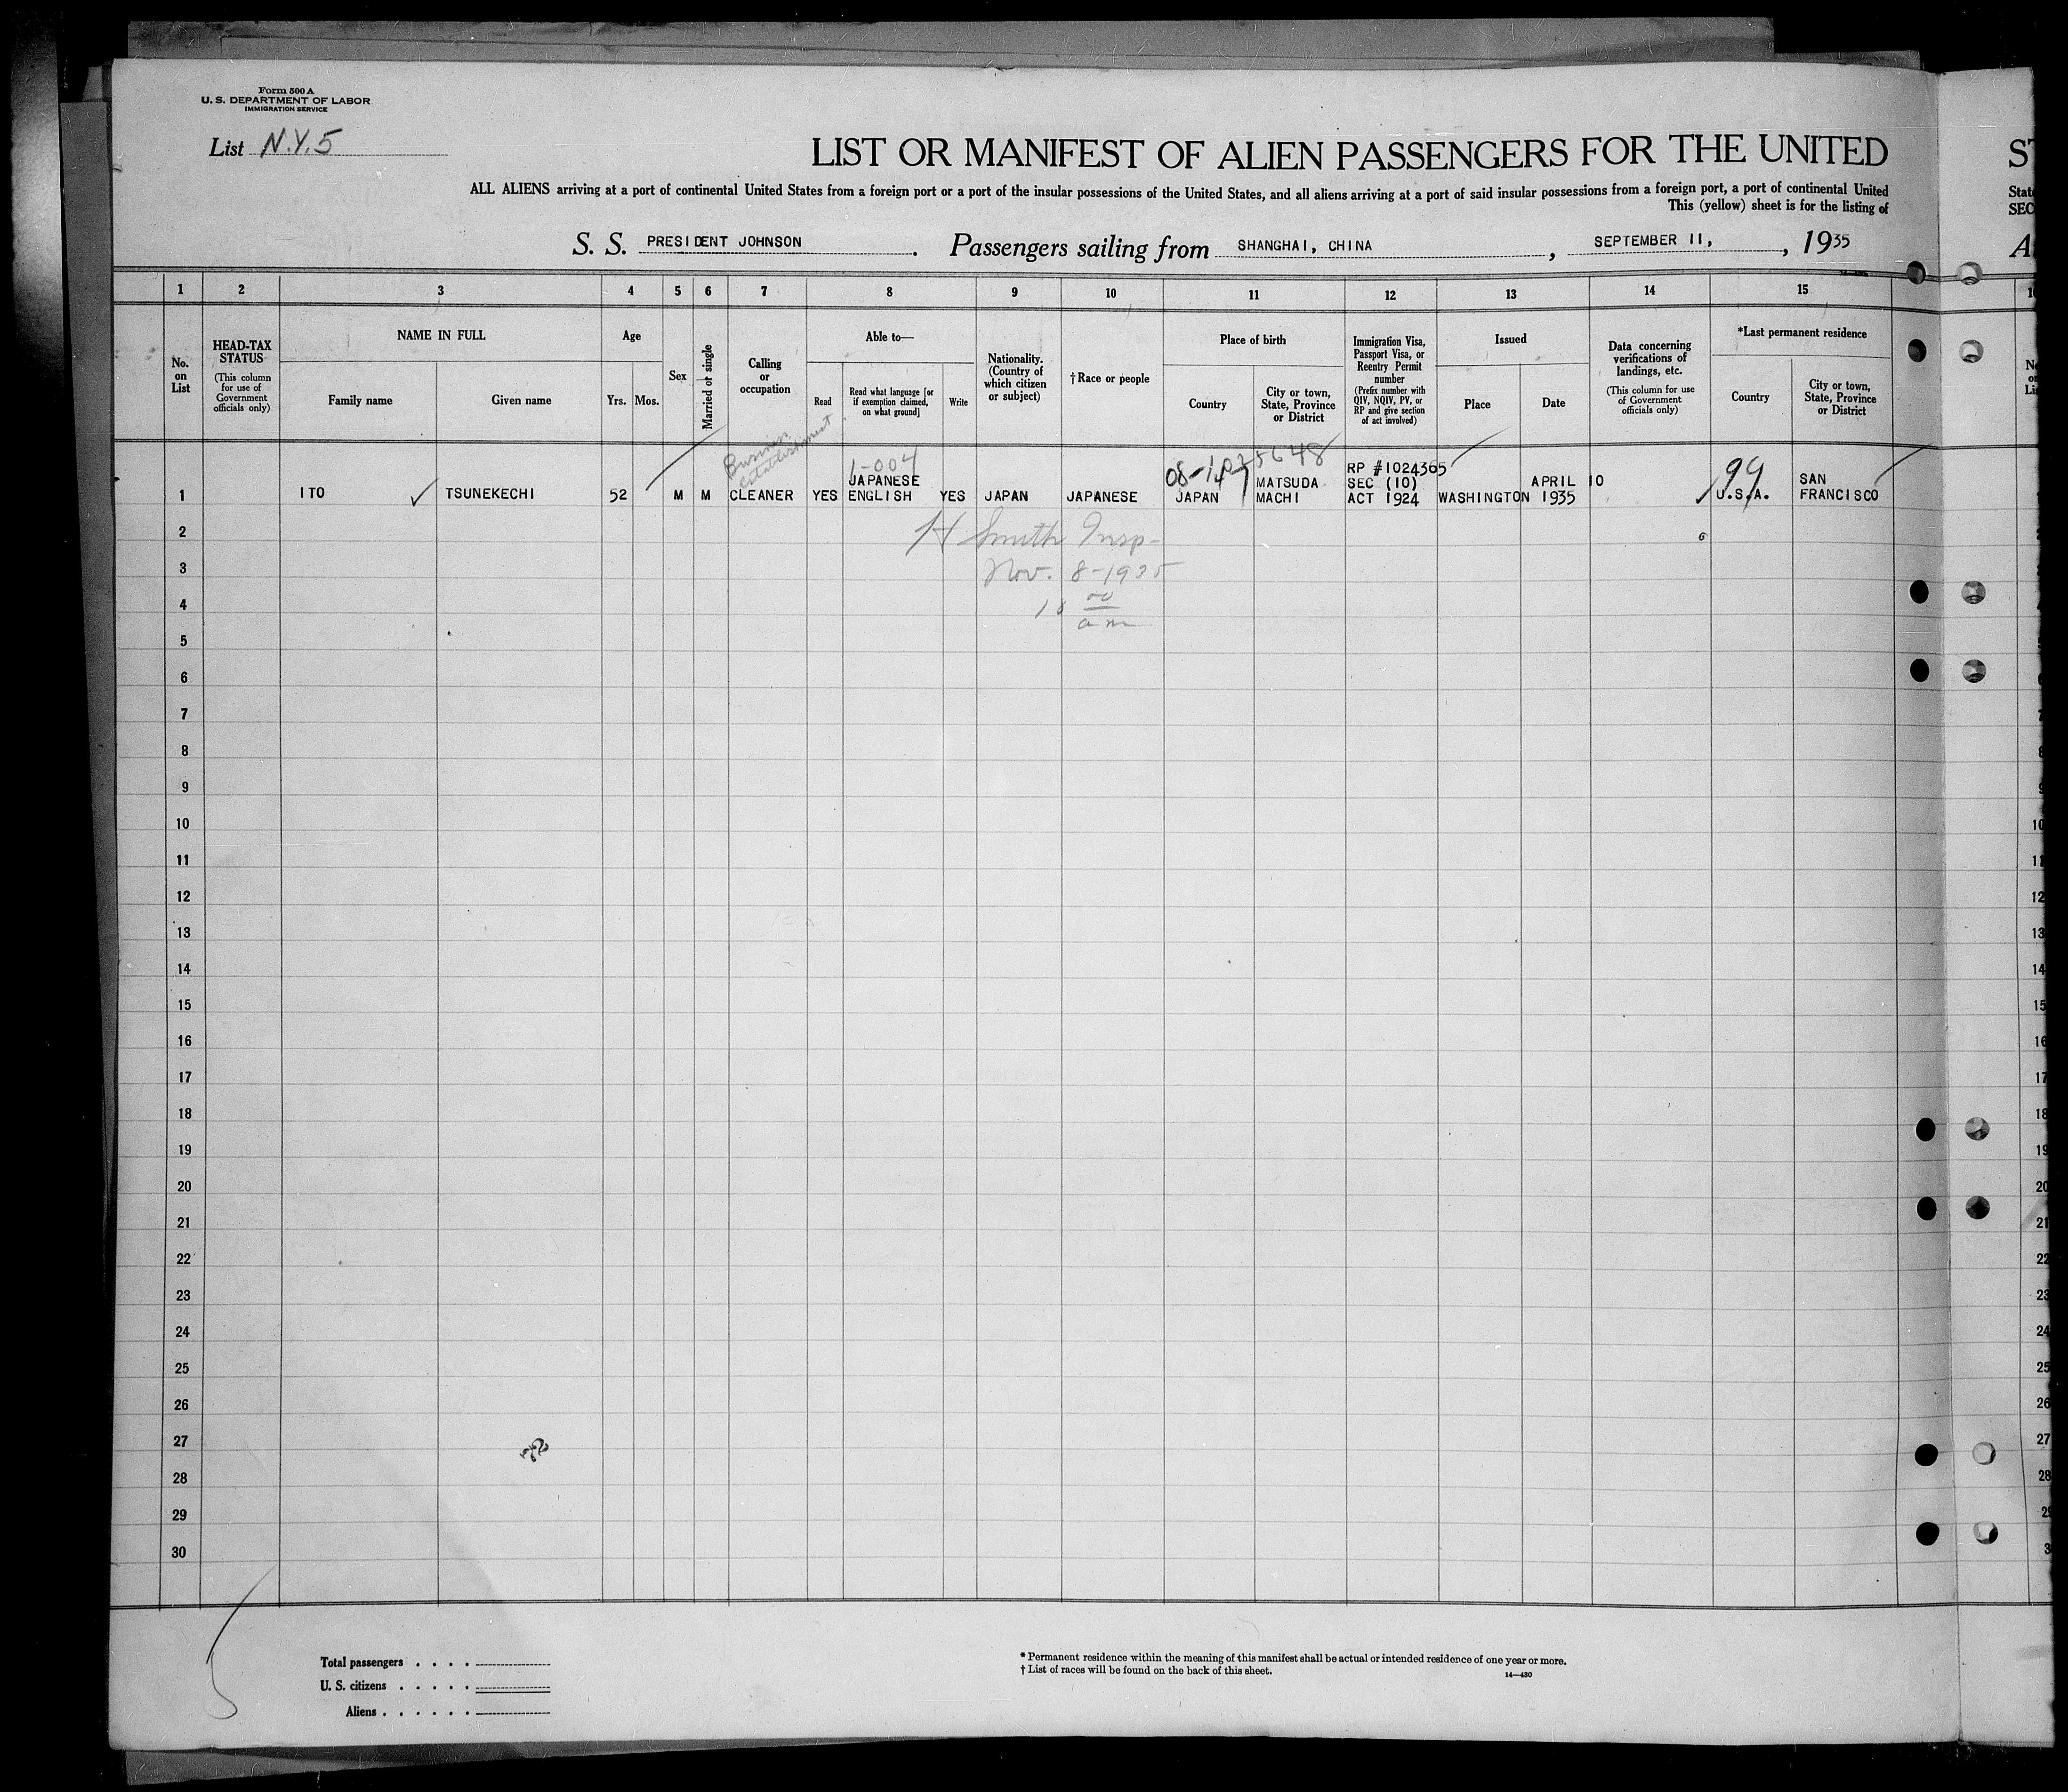 Form 500 A
U. S. DEPARTMENT OF LABOR
IMMIGRATION SERVICE
List N.Y. 5
LIST OR MANIFEST OF ALIEN PASSENGERS FOR THE UNITED
ALL ALIENS arriving at a port of continental United States from a foreign port or a port of the insular possessions of the United States, and all aliens arriving at a port of said insular possessions from a foreign port, a port of continental United
This (yellow) sheet is for the listing of
S. S. PRESIDENT JOHNSON. Passengers sailing from SHANGHAI, CHINA, SEPTEMBER 11, , 1935
1 2 3 4 5 6 7 8 9 10 11 12 13 14 15
No. on List
HEAD-TAX STATUS
(This column for use of Government officials only)
NAME IN FULL
Family name
Given name
Age
Yrs. Mos.
Sex
Married or single
Calling or occupation
Able to—
Read
Read what language [or if exemption claimed, on what ground]
Write
Nationality. (Country of which citizen or subject)
†Race or people
Place of birth
Country
City or town, State, Province or District
Immigration Visa, Passport Visa, or Reentry Permit number
(Prefix number with QIV, NQIV, PV, or RP and give section of act involved)
Issued
Place
Date
Data concerning verifications of landings, etc.
(This column for use of Government officials only)
*Last permanent residence
Country
City or town, State, Province or District
Business establishment
1-004
1 ITO TSUNEKECHI 52 M M CLEANER YES JAPANESE ENGLISH YES JAPAN JAPANESE JAPAN MATSUDA MACHI RP #1024365 SEC (10) ACT 1924 WASHINGTON APRIL 10 1935 99 U.S.A. SAN FRANCISCO
2
H Smith Insp-
3
Nov. 8-1935
4
10 00
am
5
6
7
8
9
10
11
12
13
14
15
16
17
18
19
20
21
22
23
24
25
26
27
28
29
30
Total passengers . . . .
U. S. citizens . . . . .
Aliens . . . . . .
* Permanent residence within the meaning of this manifest shall be actual or intended residence of one year or more.
† List of races will be found on the back of this sheet.
14—430